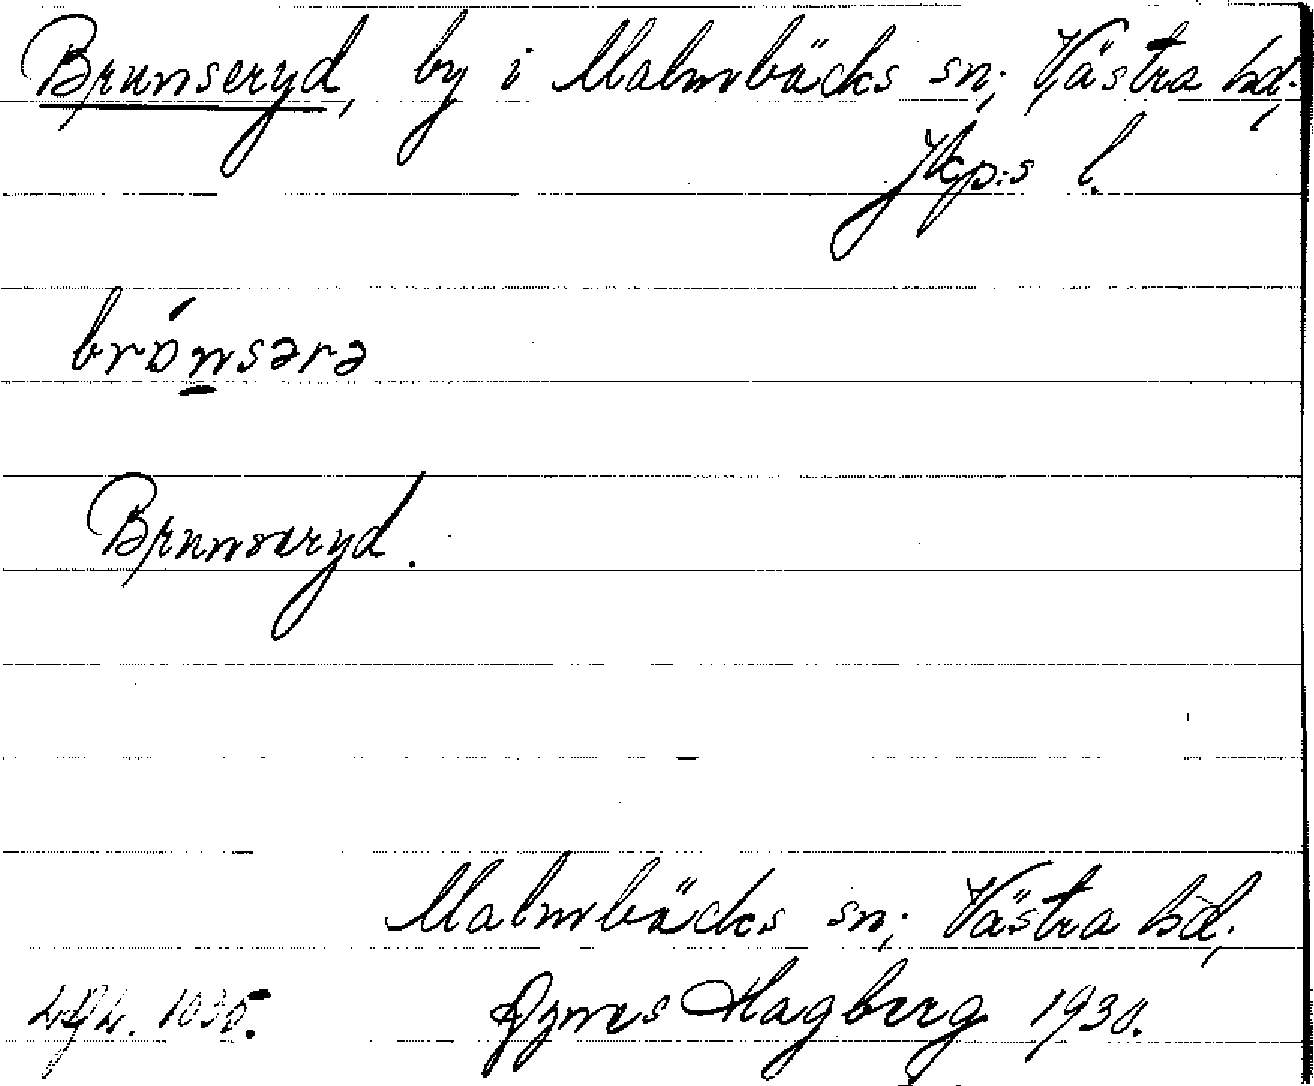 Brunseryd, by i Malmbäcks sn; Västra hd;
Jkp:s l.
brónsərə
Brunseryd.
Malmbäcks sn; Västra hd;
Agnes Hagberg 1930.